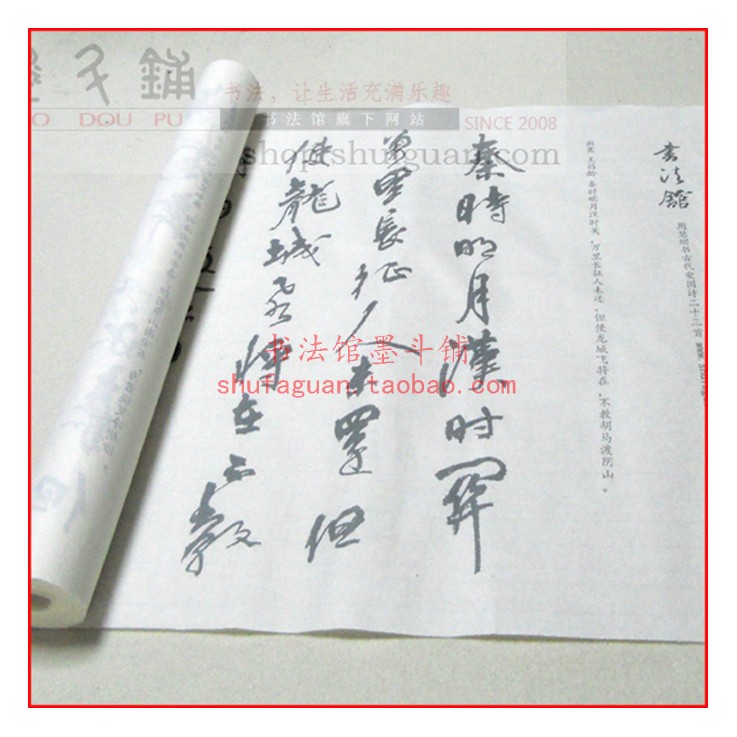 墨斗鋪
MO DOU PU
书法，让生活充满乐趣
书法馆旗下网站
SINCE 2008
shop.shufaguan.com
書法館
周慧珺书古代爱国诗二十三首
出塞 王昌龄 秦时明月汉时关，万里长征人未还。但使龙城飞将在，不教胡马渡阴山。
秦時明月漢时関
萬里長征人未還但
使龍城飞將在不教
书法馆墨斗铺
shufaguan.taobao.com